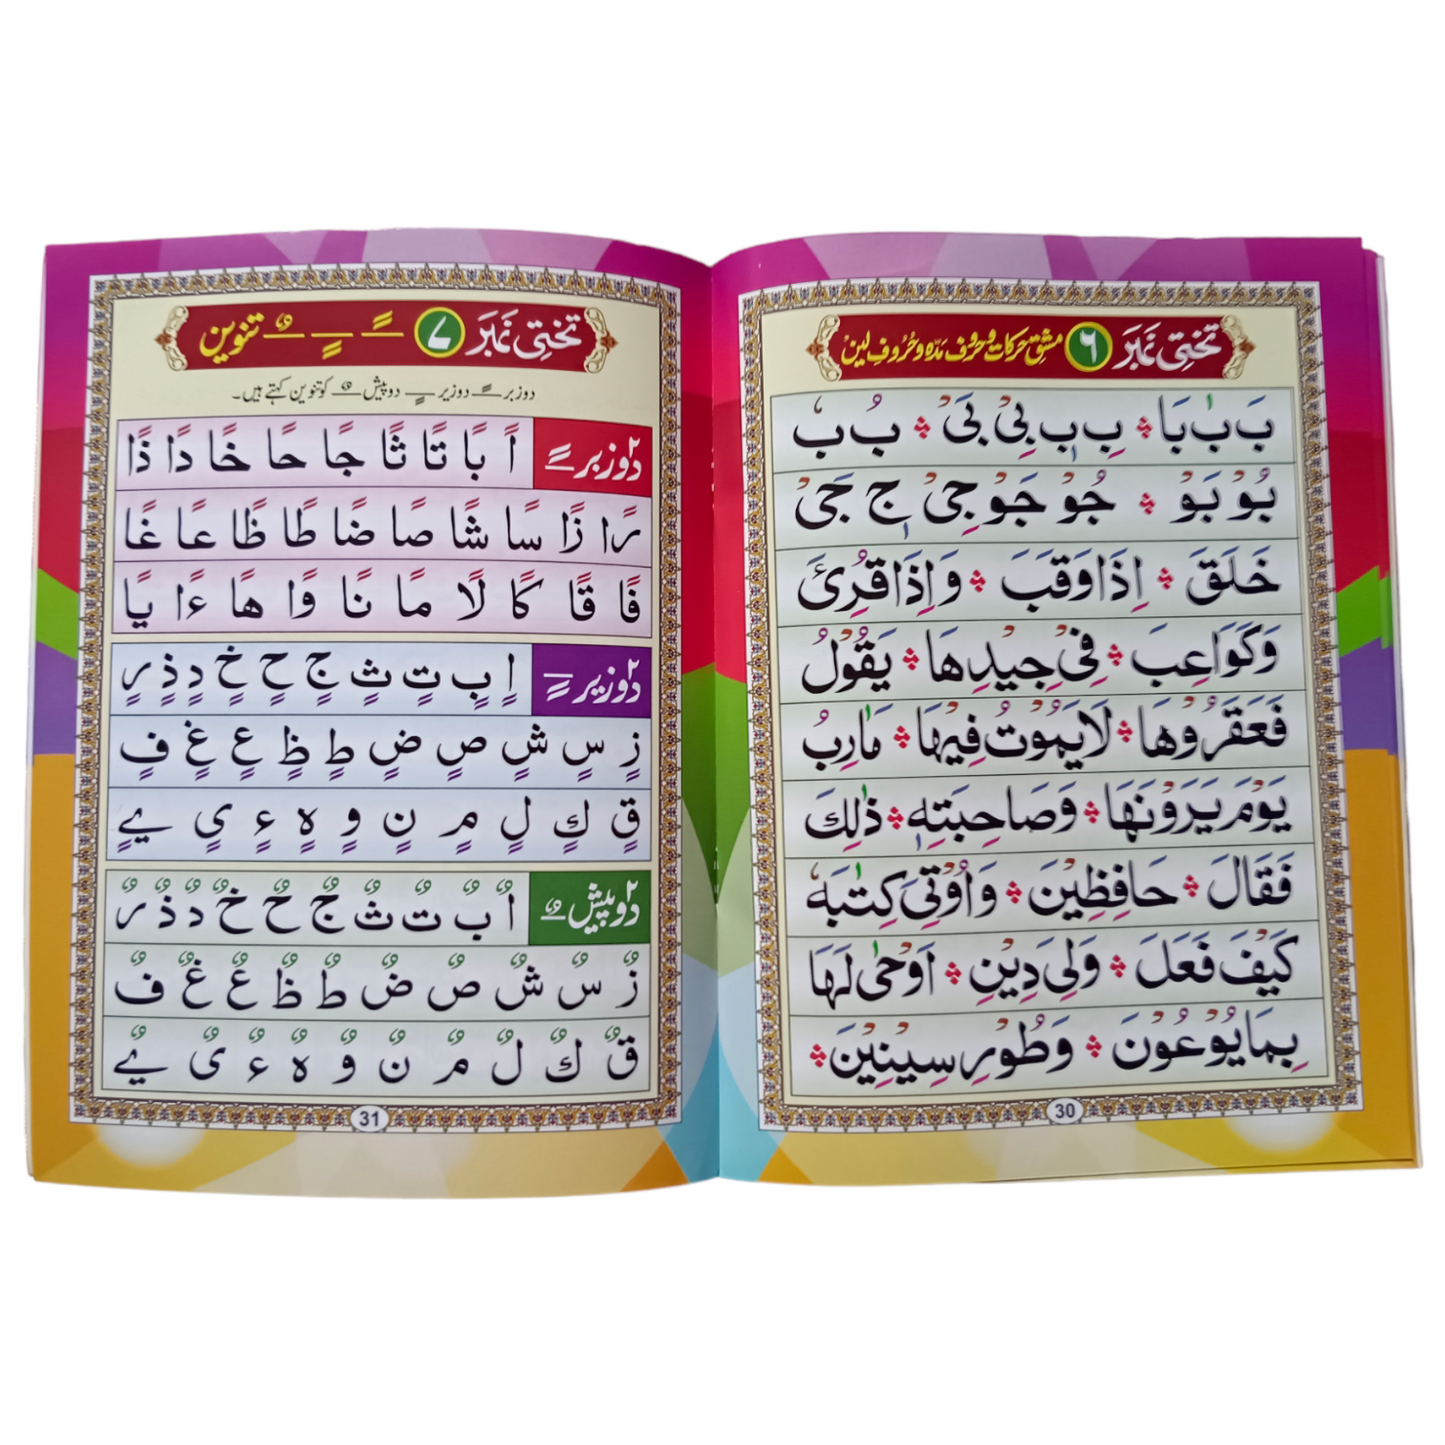 تختی نمبر ۶ مشق حرکات و حروف مدہ و حروف لین
بَ بٰ بَا ❖ بِ بٖ بِىْ بَىْ ❖ بُ بٗ
بُوْ بَوْ ❖ جُوْ جَوْ جِىْ جٖ جَىْ
خَلَقَ ❖ اِذَا وَقَبَ ❖ وَاِذَا قُرِئَ
وَكَوَاعِبَ ❖ فِىْ جِيْدِهَا ❖ يَقُوْلُ
فَعَقَرُوْهَا ❖ لَا يَمُوْتُ فِيْهَا ❖ مَاٰرِبُ
يَوْمَ يَرَوْنَهَا ❖ وَصَاحِبَتِهٖ ❖ ذٰلِكَ
فَقَالَ ❖ حَافِظِيْنَ ❖ وَاُوْتِىَ كِتٰبَهٗ
كَيْفَ فَعَلَ ❖ وَلِىَ دِيْنِ ❖ اَوْحٰى لَهَا
بِمَا يُوْعُوْنَ ❖ وَطُوْرِ سِيْنِيْنَ ❖
30
تختی نمبر ۷ ـً ـٍ ـٌ تنوین
دو زبر ـً دو زیر ـٍ دو پیش ـٌ کو تنوین کہتے ہیں۔
دو زبر ـً اً بًا تًا ثًا جًا حًا خًا دًا ذًا
رًا زًا سًا شًا صًا ضًا طًا ظًا عًا غًا
فًا قًا كًا لًا مًا نًا وًا هًا ءًا يًا
دو زیر ـٍ اٍ بٍ تٍ ثٍ جٍ حٍ خٍ دٍ ذٍ رٍ
زٍ سٍ شٍ صٍ ضٍ طٍ ظٍ عٍ غٍ فٍ
قٍ كٍ لٍ مٍ نٍ وٍ هٍ ءٍ يٍ ےٍ
دو پیش ـٌ اٌ بٌ تٌ ثٌ جٌ حٌ خٌ دٌ ذٌ رٌ
زٌ سٌ شٌ صٌ ضٌ طٌ ظٌ عٌ غٌ فٌ
قٌ كٌ لٌ مٌ نٌ وٌ هٌ ءٌ ىٌ ےٌ
31